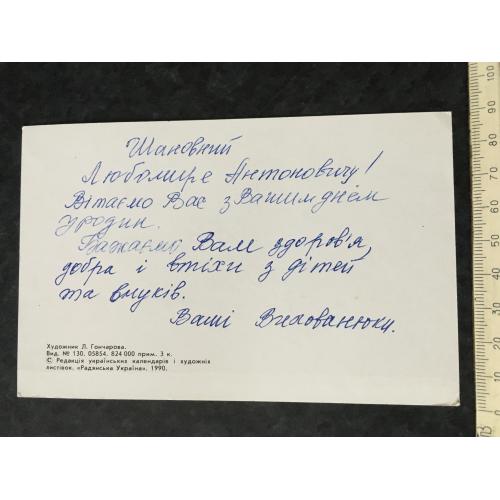 Шановний
Любомире Антоновичу!
Вітаємо Вас з Вашим днем
уродин.
Бажаємо Вам здоров'я,
добра і втіхи з дітей
та внуків.
Ваші Вихованюки.
Художник Л. Гончарова.
Вид. № 130. 05854. 824 000 прим. 3 к.
© Редакція українських календарів і художніх
листівок. «Радянська Україна». 1990.
100
90
80
70
60
50
40
30
20
10